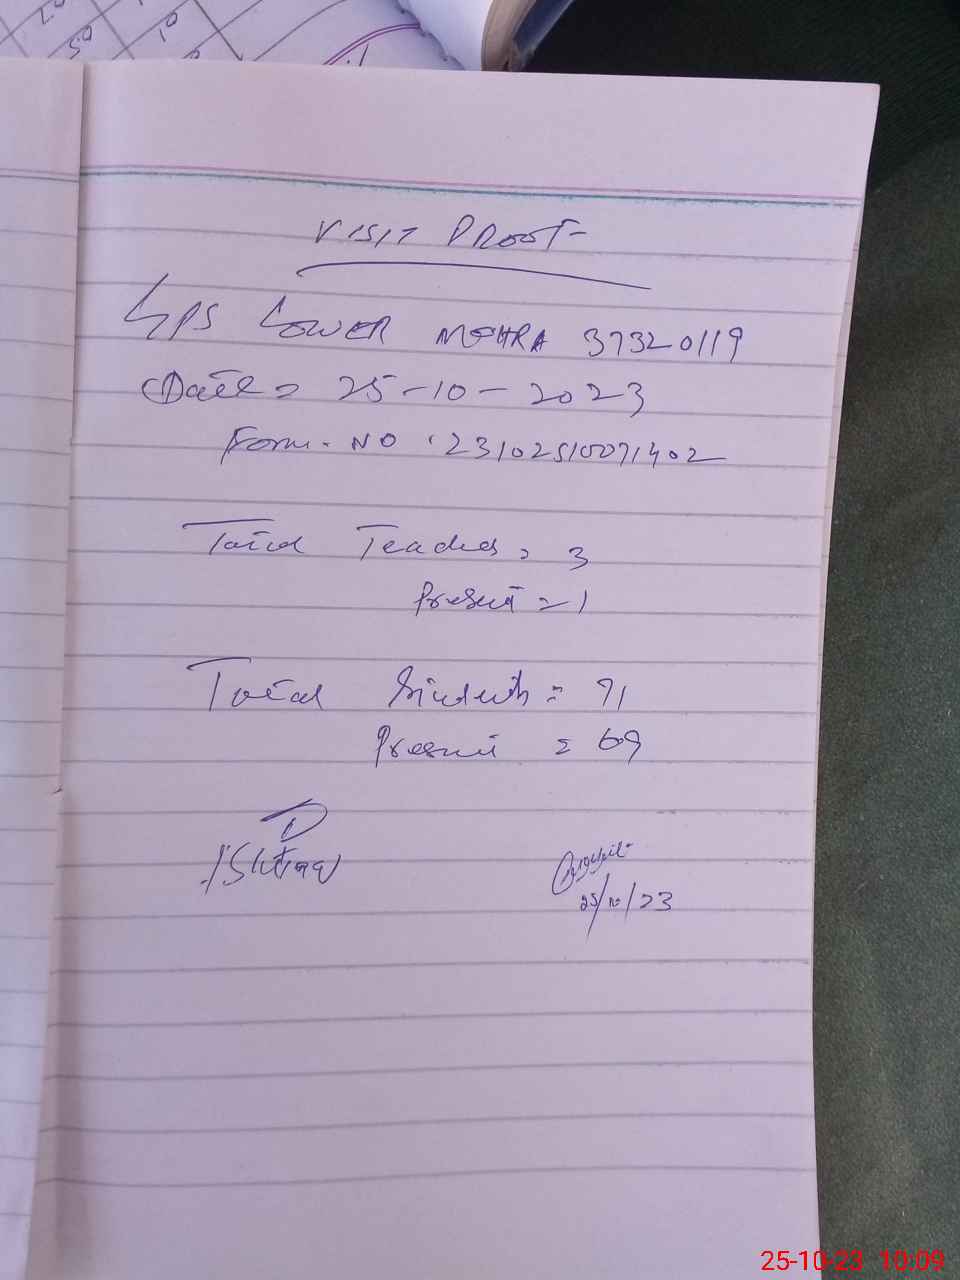 0.5
0.1
VISIT PROOF
GPS LOWER MOHRA 37320119
Date = 25-10-2023
Form. NO : 23102510071402
Total Teaches = 3
Present = 1
Total Students = 91
Present = 69
25/10/23
25-10-23 10:09